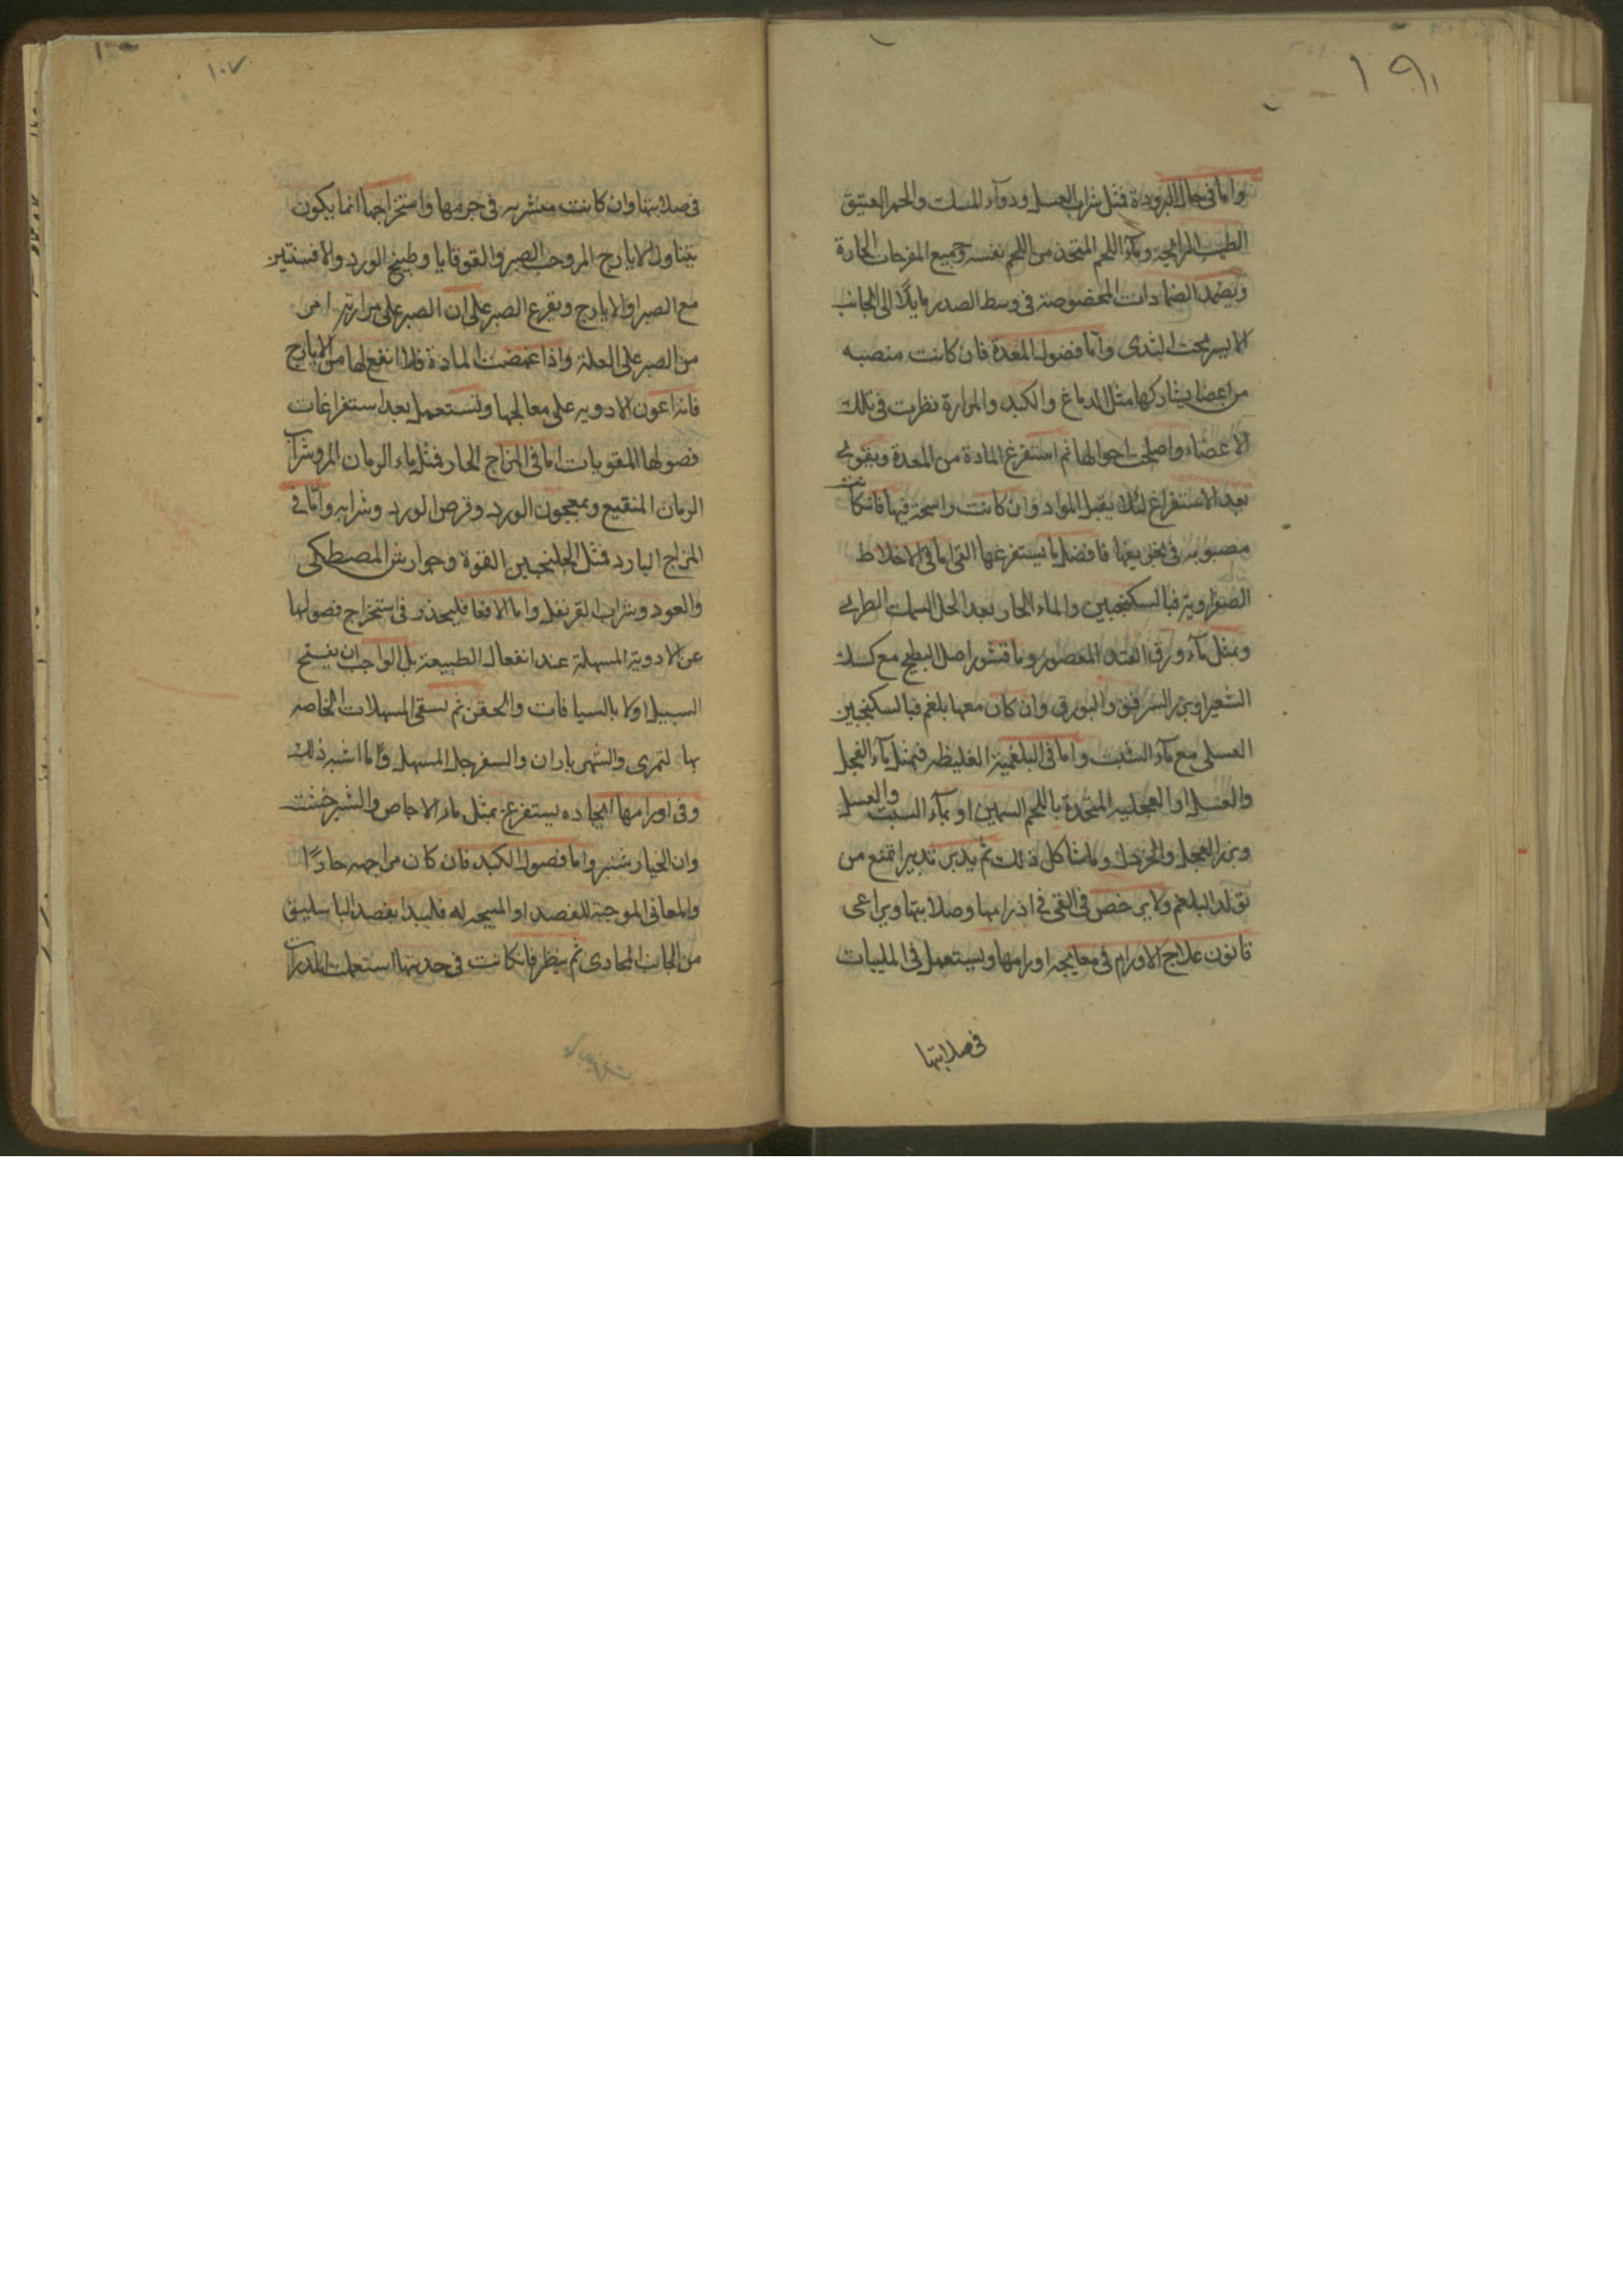 ١٩١
واما فى حال البرودة فمثل شراب العسل ودوآء المسك والخمر العتيق
الطيب الرايحة ومآء اللحم المتخذ من اللحم نفسه وجميع المفرحات الحارة
ويضمد الضمادات المخصوصة فى وسط الصدر مايلًا الى الجانب
الايسر تحت الثدى وامّا فضول المعدة فان كانت منصبه
من اعضا يشاركها مثل الدماغ والكبد والمرارة نظرت فى تلك
الاعضاء واصلحت احوالها ثم استفرغ المادة من المعدة ويقوى
بعد الاستفراغ لئلا يقبل المواد وان كانت راسخة فيها فان كانت
مصبوبه فى تجويفها فافضل ما يستفرغها القى اما فى الاخلاط
الصفراوية فبالسكنجبين والماء الحار بعد اكل السمك الطرى
وبمثل مآء ورق القثد المعصور وماقشور اصل البطيخ مع كسك
الشعير او بزر السرفق والبورق وان كان معها بلغم فبالسكنجبين
العسلى مع مآء الشبت واما فى البلغمية الغليظه فبمثل مآء الفجل
والعسل او الفجليه المتخذة باللحم السمين او بمآء السبت والعسل
وبزر الفجل والخردل وماشاكل ذلك ثم يدبر تدبيرا تمنع من
تولد البلغم ولا يرخص فى القى فى اورامها وصلابتها ويراعى
قانون علاج الاورام فى معالجه اورامها ويستعمل فى الملينات
فى صلابتها
١٠٧
فى صلابتها وان كانت متشربه فى جرمها واستخراجها انما يكون
بتناول الايارج المر وحب الصبر والقوقايا وطبيخ الورد والافسنتين
مع الصبر او الايارج ويقرع الصبر على ان الصبر على مرارته امر
من الصبر على العلة واذا غمضت المادة فلا انفع لها من الايارج
فانه اعون الادويه على معالجها وتستعمل بعد استفراغات
فصولها المقويات اما فى المزاج الحار فمثل ماء الرمان المر وشراب
الرمان المنقيع وبمعجون الورد وقرص الورد وشرابه وامّا فى
المزاج البارد فمثل الجلنجبين القوة وجوارش المصطكى
والعود وشراب القرنفل واما الامعا فليحذر فى استخراج فصولها
عن الادوية المسهلة عند انفعال الطبيعة بل الواجب ان يفتح
السبيل اولا بالسيافات والحقن ثم يسقى المسهلات الخاصه
بها لتمرى والشهرياران والسفرجل المسهل وما اشبه ذلك
وفى اورامها الحاده يستفرغ بمثل ماء الاجاص والشيرخشت
وان الخيارشنبر واما فصول الكبد فان كان مزاجه حارًا
والمعانى الموجبة للفصد او المبيحه له فليبدا بفصد الباسليق
من الجانب المحاذى ثم ينظر فان كانت فى حدبتها استعملت المدرات